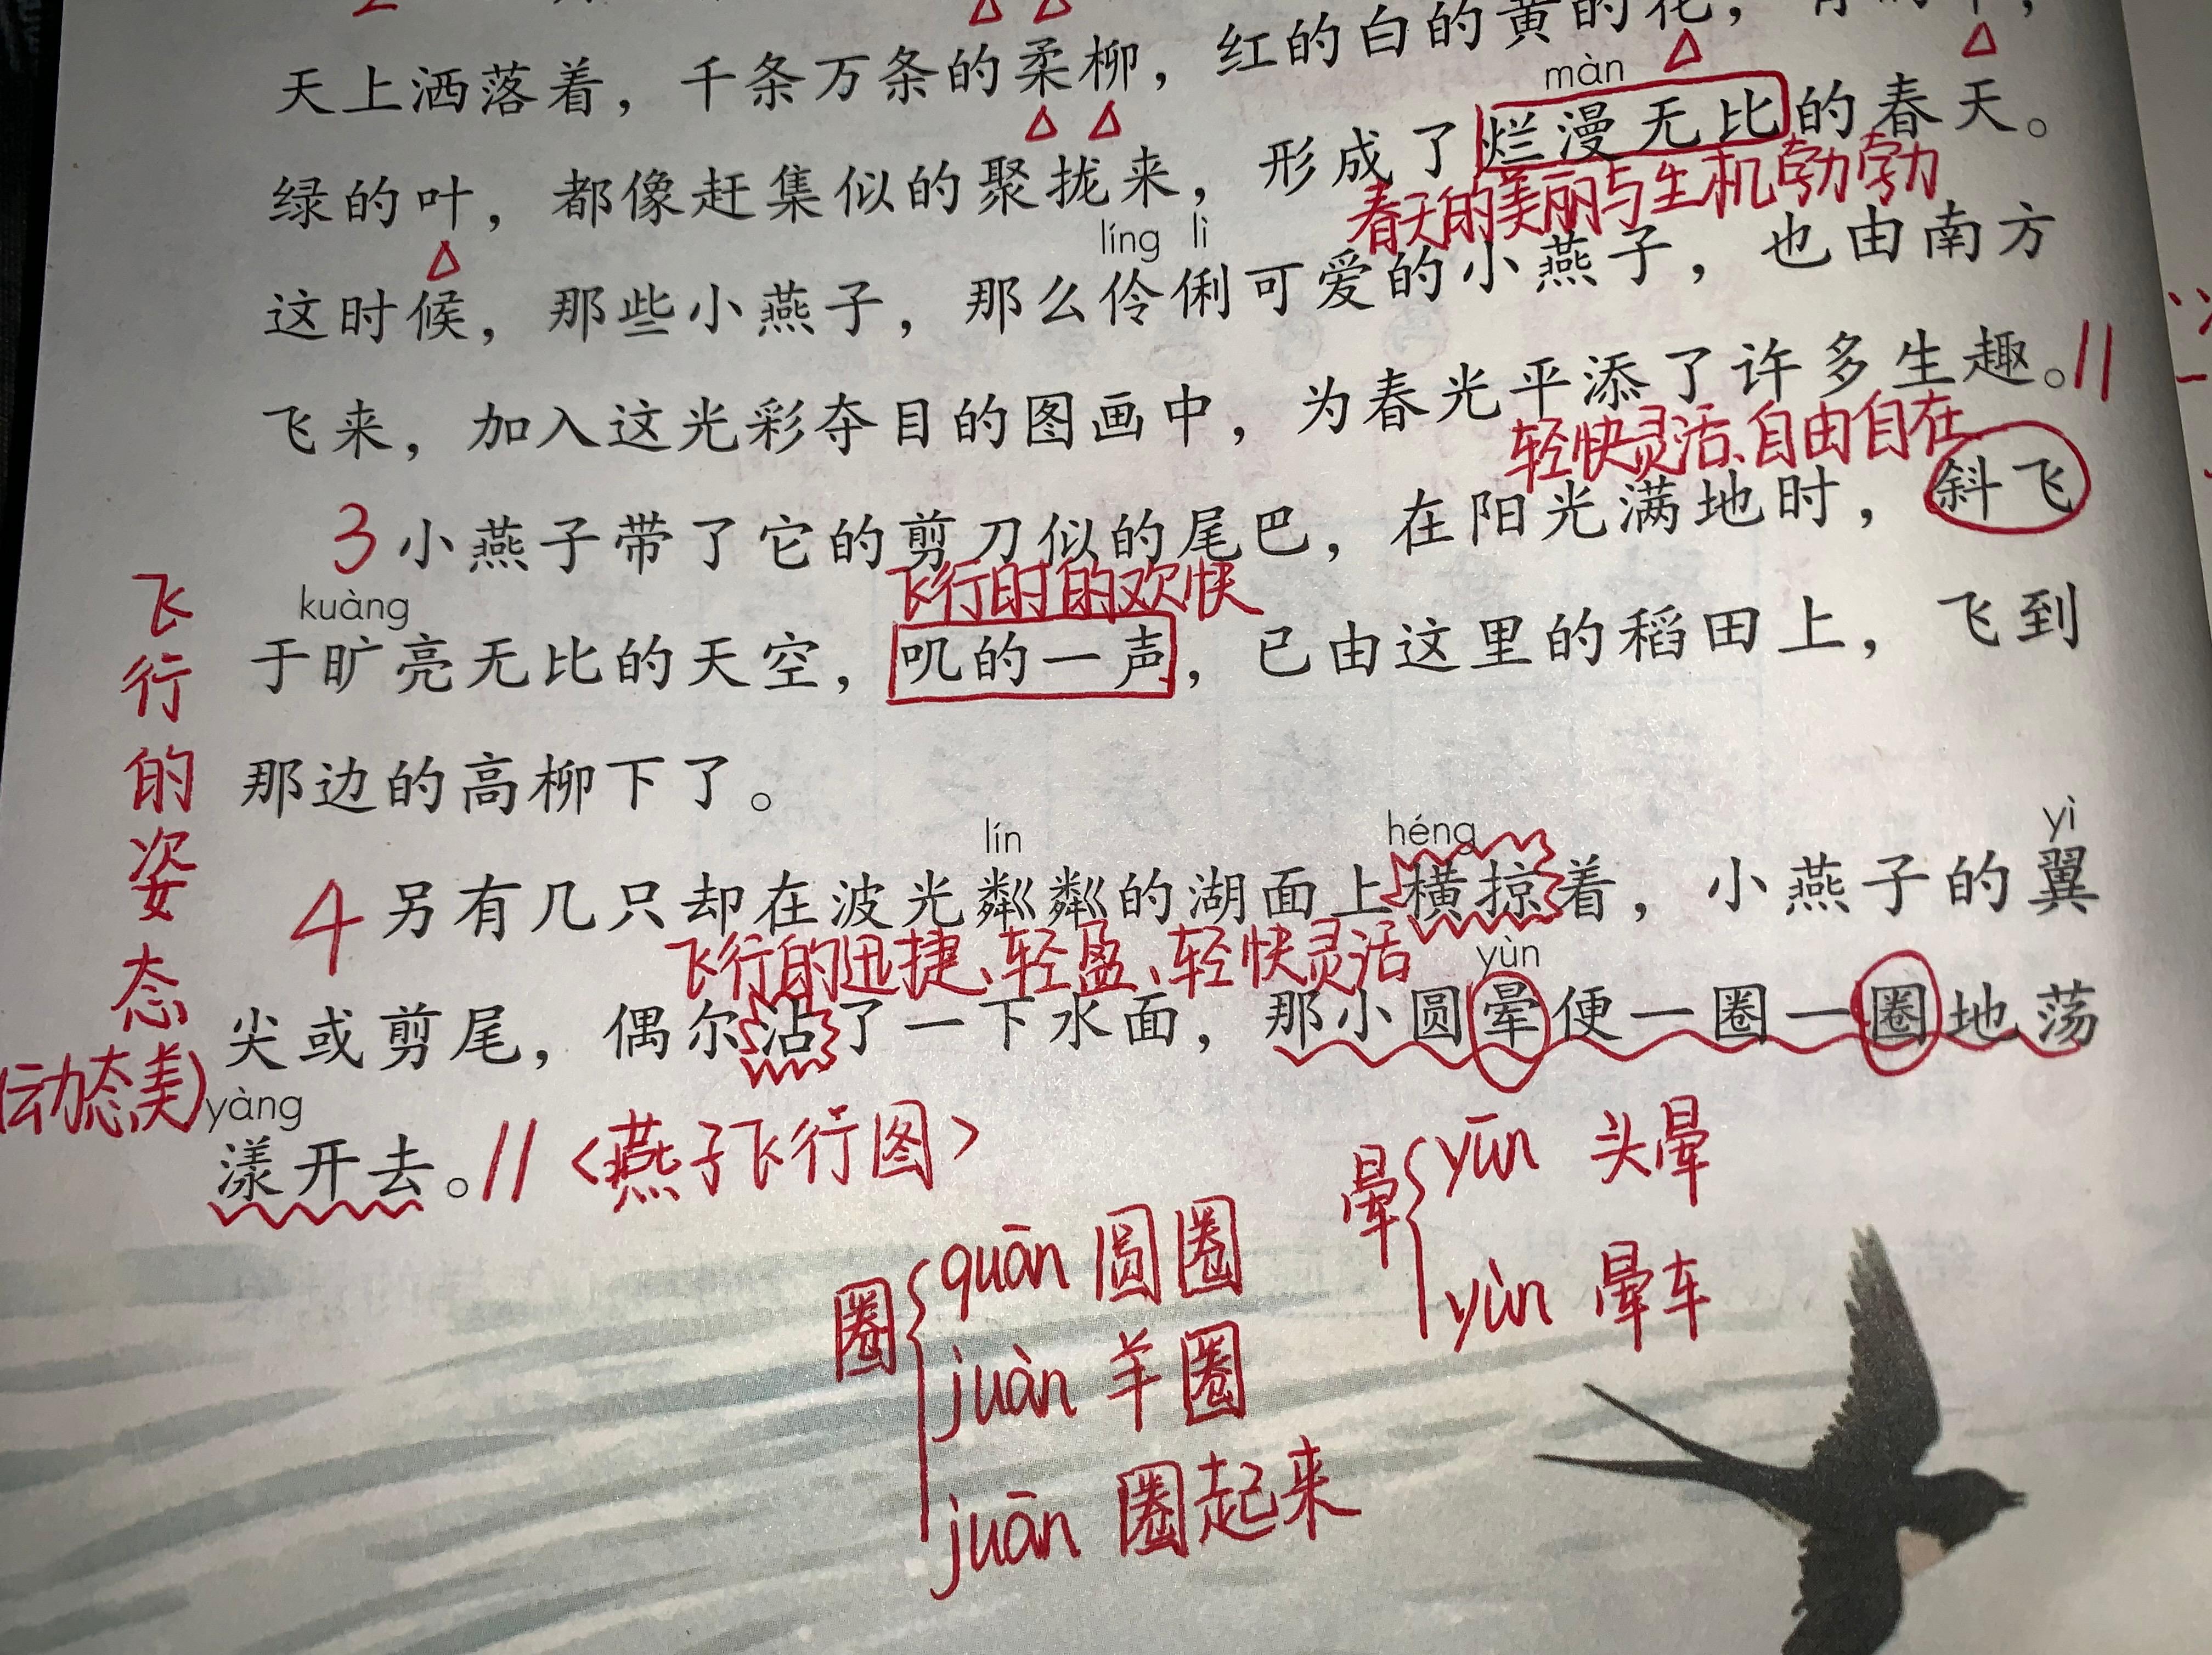 天上洒落着，千条万条的柔柳，红的白的黄的花，
màn
绿的叶，都像赶集似的聚拢来，形成了烂漫无比的春天。
春天的美丽与生机勃勃
líng lì
这时候，那些小燕子，那么伶俐可爱的小燕子，也由南方
飞来，加入这光彩夺目的图画中，为春光平添了许多生趣。//
轻快灵活、自由自在
3 小燕子带了它的剪刀似的尾巴，在阳光满地时，斜飞
飞行时的欢快
kuàng
于旷亮无比的天空，叽的一声，已由这里的稻田上，飞到
那边的高柳下了。
飞行的姿态
(动态美)
lín héng yì
4 另有几只却在波光粼粼的湖面上横掠着，小燕子的翼
飞行的迅捷、轻盈、轻快灵活
yùn
尖或剪尾，偶尔沾了一下水面，那小圆晕便一圈一圈地荡
yàng
漾开去。// <燕子飞行图>
晕 yūn 头晕
yùn 晕车
圈 quān 圆圈
juàn 羊圈
juān 圈起来